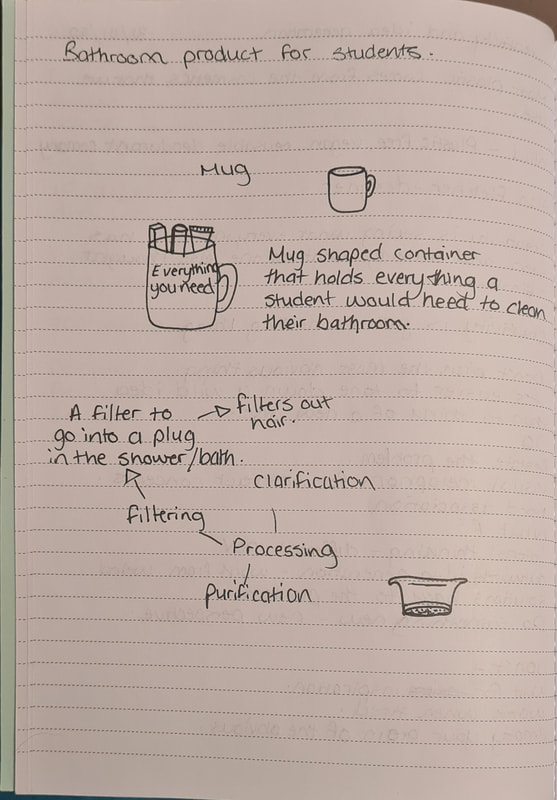 Bathroom product for students.
Mug
Everything
you need
Mug shaped container
that holds everything a
student would need to clean
their bathroom.
A filter to
go into a plug
in the shower/bath.
filters out
hair.
Clarification
filtering
Processing
purification